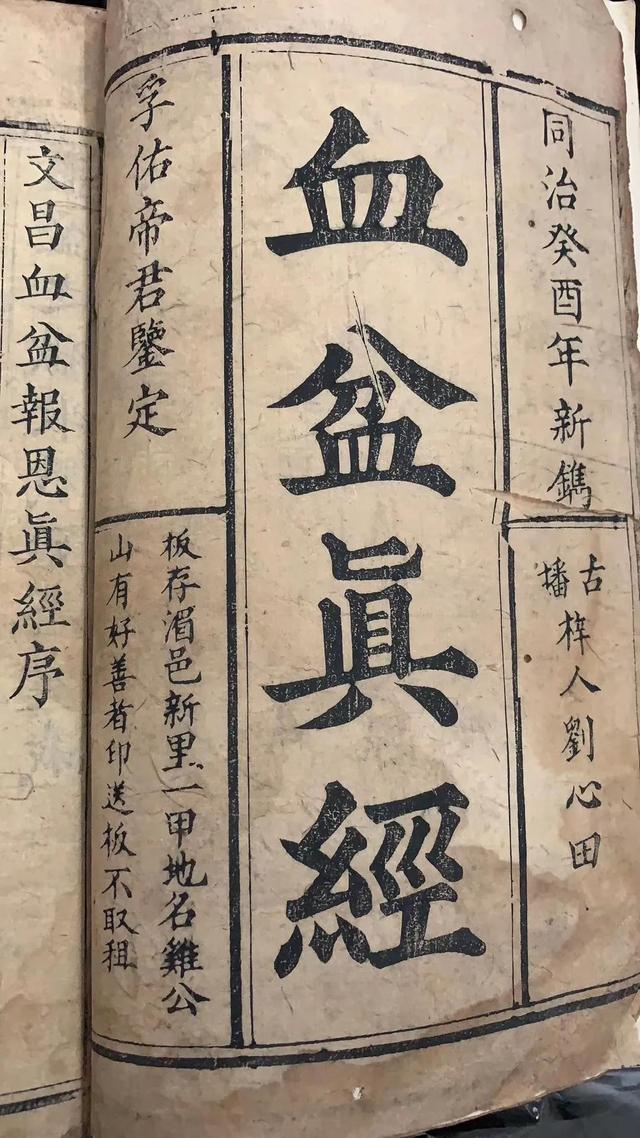 同治癸酉年新鐫
古播
梓人劉心田
血盆眞經
孚佑帝君鑒定
板存湄邑新里一甲地名雞公
山有好善者印送板不取租
文昌血盆報恩眞經序